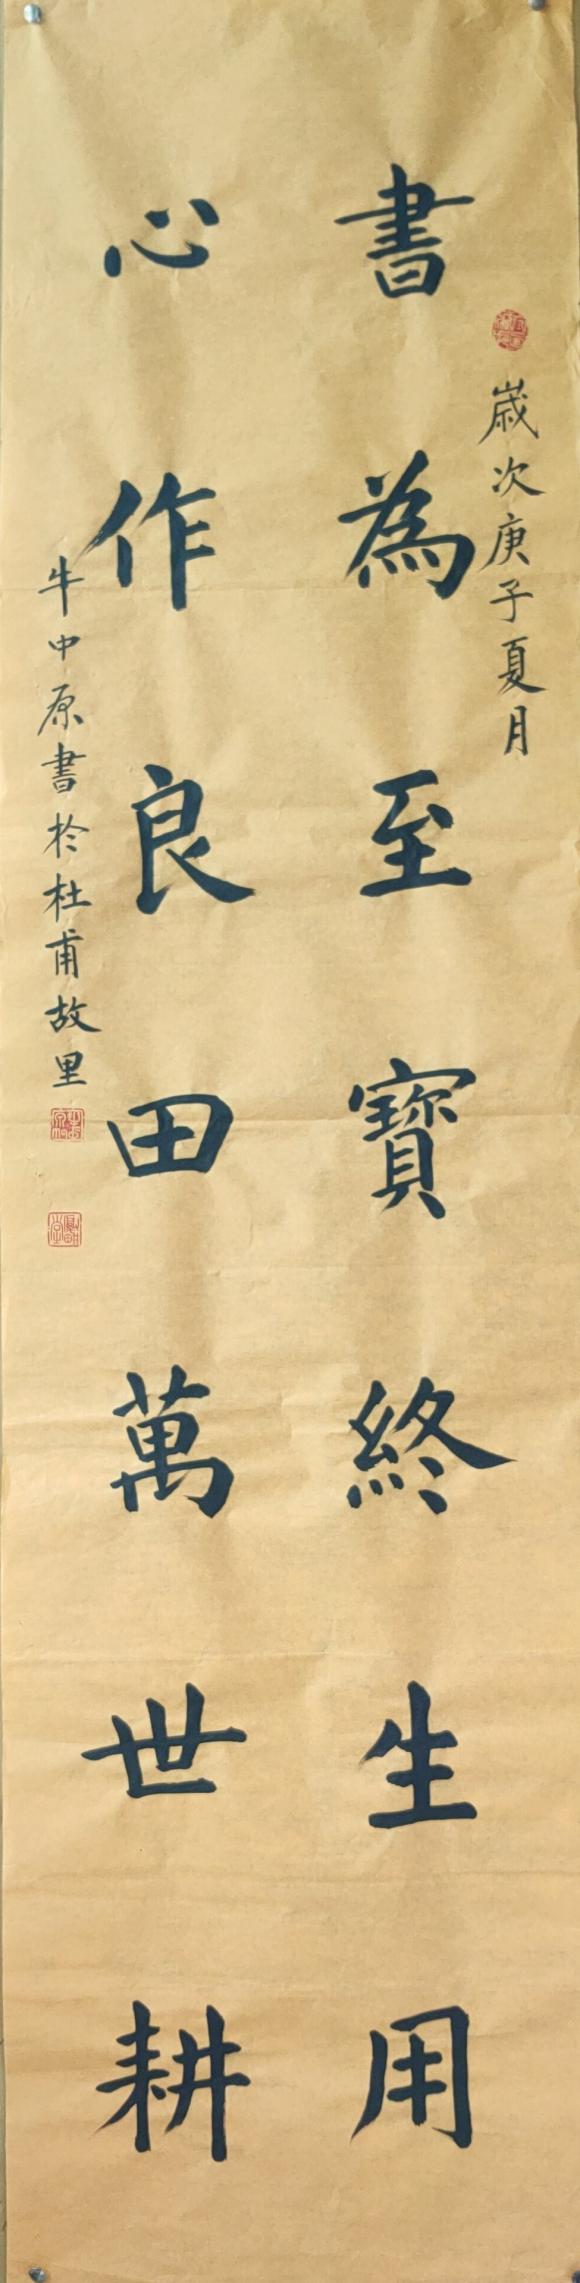 歲次庚子夏月
書為至寳終生用
心作良田萬世耕
牛中原書於杜甫故里